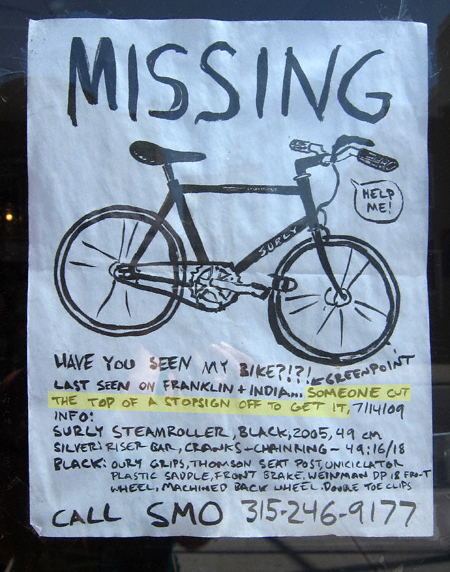 MISSING
HELP
ME!
SURLY
HAVE YOU SEEN MY BIKE?!?!
GREENPOINT
LAST SEEN ON FRANKLIN + INDIA... SOMEONE CUT
THE TOP OF A STOPSIGN OFF TO GET IT, 7/14/09
INFO:
SURLY STEAMROLLER, BLACK, 2005, 49 CM
SILVER: RISER BAR, CRANKS + CHAINRING - 49:16/18
BLACK: OURY GRIPS, THOMSON SEAT POST, UNICICLATOR
PLASTIC SADDLE, FRONT BRAKE, WEINMAN DP18 FRONT
WHEEL, MACHINED BACK WHEEL. DOUBLE TOE CLIPS
CALL SMO 315-246-9177